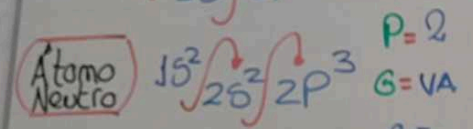 Átomo
Neutro
1S² 2S² 2P³
P=2
G=VA